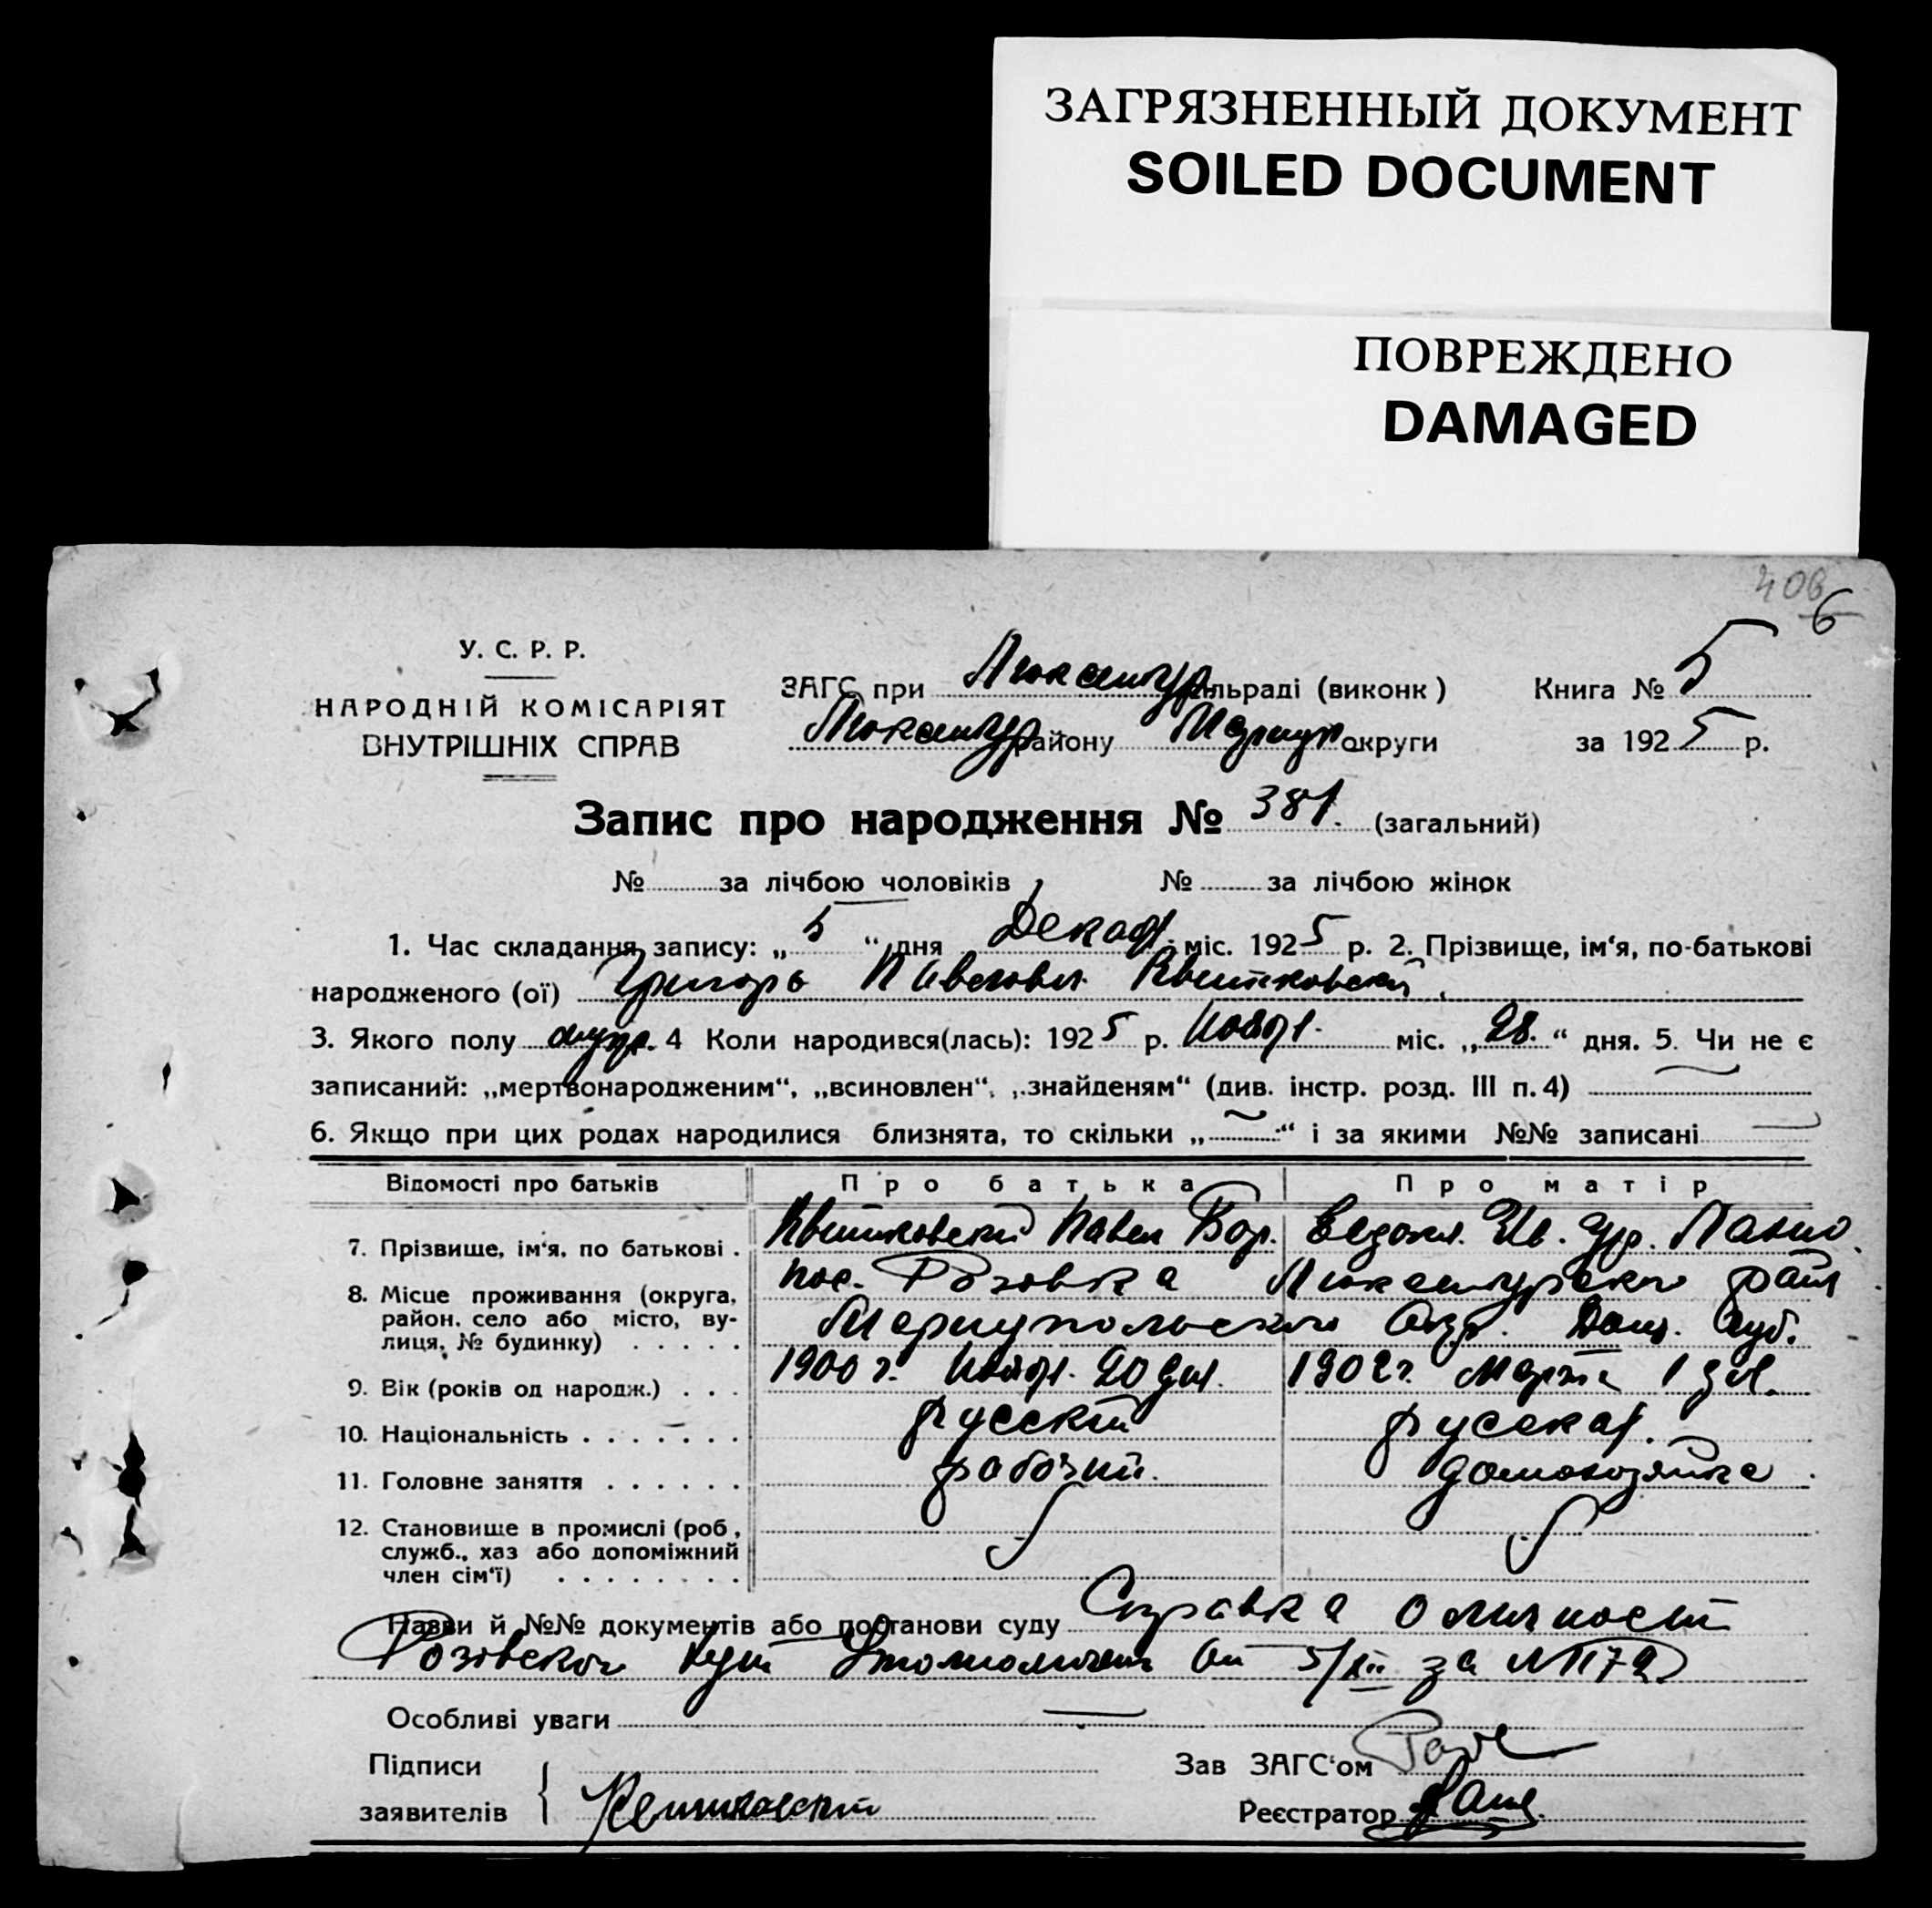 ЗАГРЯЗНЕННЫЙ ДОКУМЕНТ
SOILED DOCUMENT
ПОВРЕЖДЕНО
DAMAGED
6
У. С. Р. Р.
НАРОДНІЙ КОМІСАРІЯТ
ВНУТРІШНІХ СПРАВ
ЗАГС при Люксембур. сільраді (виконк) Книга № 5
Люксембур району Мариуп округи за 1925 р.
Запис про народження № 381. (загальний)
№ за лічбою чоловіків № за лічбою жінок
1. Час складання запису: „5“ дня Декабр. міс. 1925 р. 2. Прізвище, ім‘я, по-батькові
народженого (ої) Григорь Павлович Квитковский.
3. Якого полу мужс. 4 Коли народився(лась): 1925 р. Ноябр. міс. „28.“ дня. 5. Чи не є
записаний: „мертвонародженим“, „всиновлен“, „знайденям“ (див. інстр. розд. III п. 4)
6. Якщо при цих родах народилися близнята, то скільки „ “ і за якими №№ записані
Відомості про батьків Про батька Про матір
7. Прізвище, ім‘я, по батькові . Квитковский Павел
8. Місце проживання (округа, район, село або місто, вулиця, № будинку) . . . . . пос. Розовка Люксембургского район
Мариупольского Окр. Дон. Губ.
9. Вік (років од народж.) . . . 1900 г. Ноябр. 20 дня. 1902 г. Марта 1 дня.
10. Національність . . . . . . . русский русская.
11. Головне заняття . . . . . . рабочий. домохозяйка.
12. Становище в промислі (роб,
служб., хаз або допоміжний
член сім‘ї) . . . . . . . .
Назви й №№ документів або постанови суду Справка о личности
Розовского от 5/XII за №
Особливі уваги
Підписи Зав ЗАГС‘ом
заявителів Квитковский Реєстратор